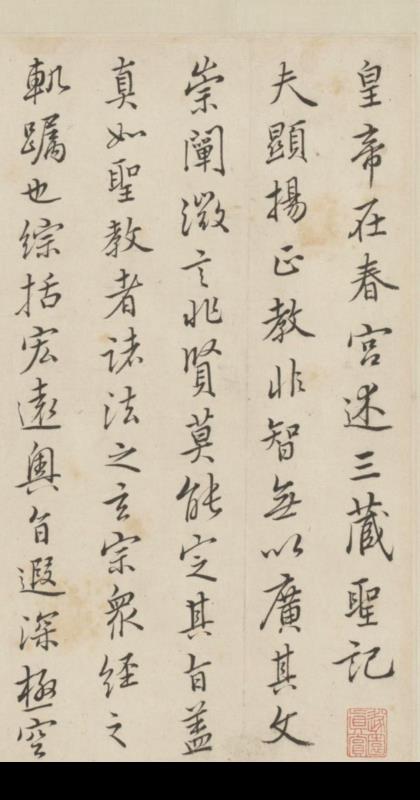 皇帝在春宮述三藏聖記
夫顯揚正教非智無以廣其文
崇闡微言非賢莫能定其旨蓋
真如聖教者諸法之玄宗眾經之
軌躅也綜括宏遠奧旨遐深極空